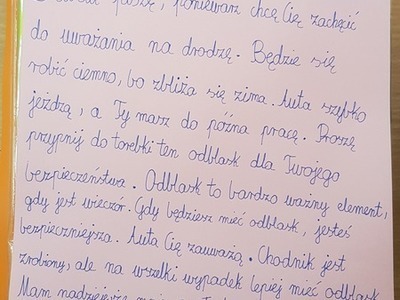 piszę, ponieważ chcę Cię zachęcić
do uważania na drodzę. Będzie się
robić ciemno, bo zbliża się zima. Auta szybko
jeżdżą, a Ty masz do późna pracę. Proszę
przypnij do torebki ten odblask dla Twojego
bezpieczeństwa. Odblask to bardzo ważny element,
gdy jest wieczór. Gdy będziesz mieć odblask, jesteś
bezpieczniejsza. Auta Cię zauważą. Chodnik jest
zrobiony, ale na wszelki wypadek lepiej mieć odblask.
Mam nadzieję, że